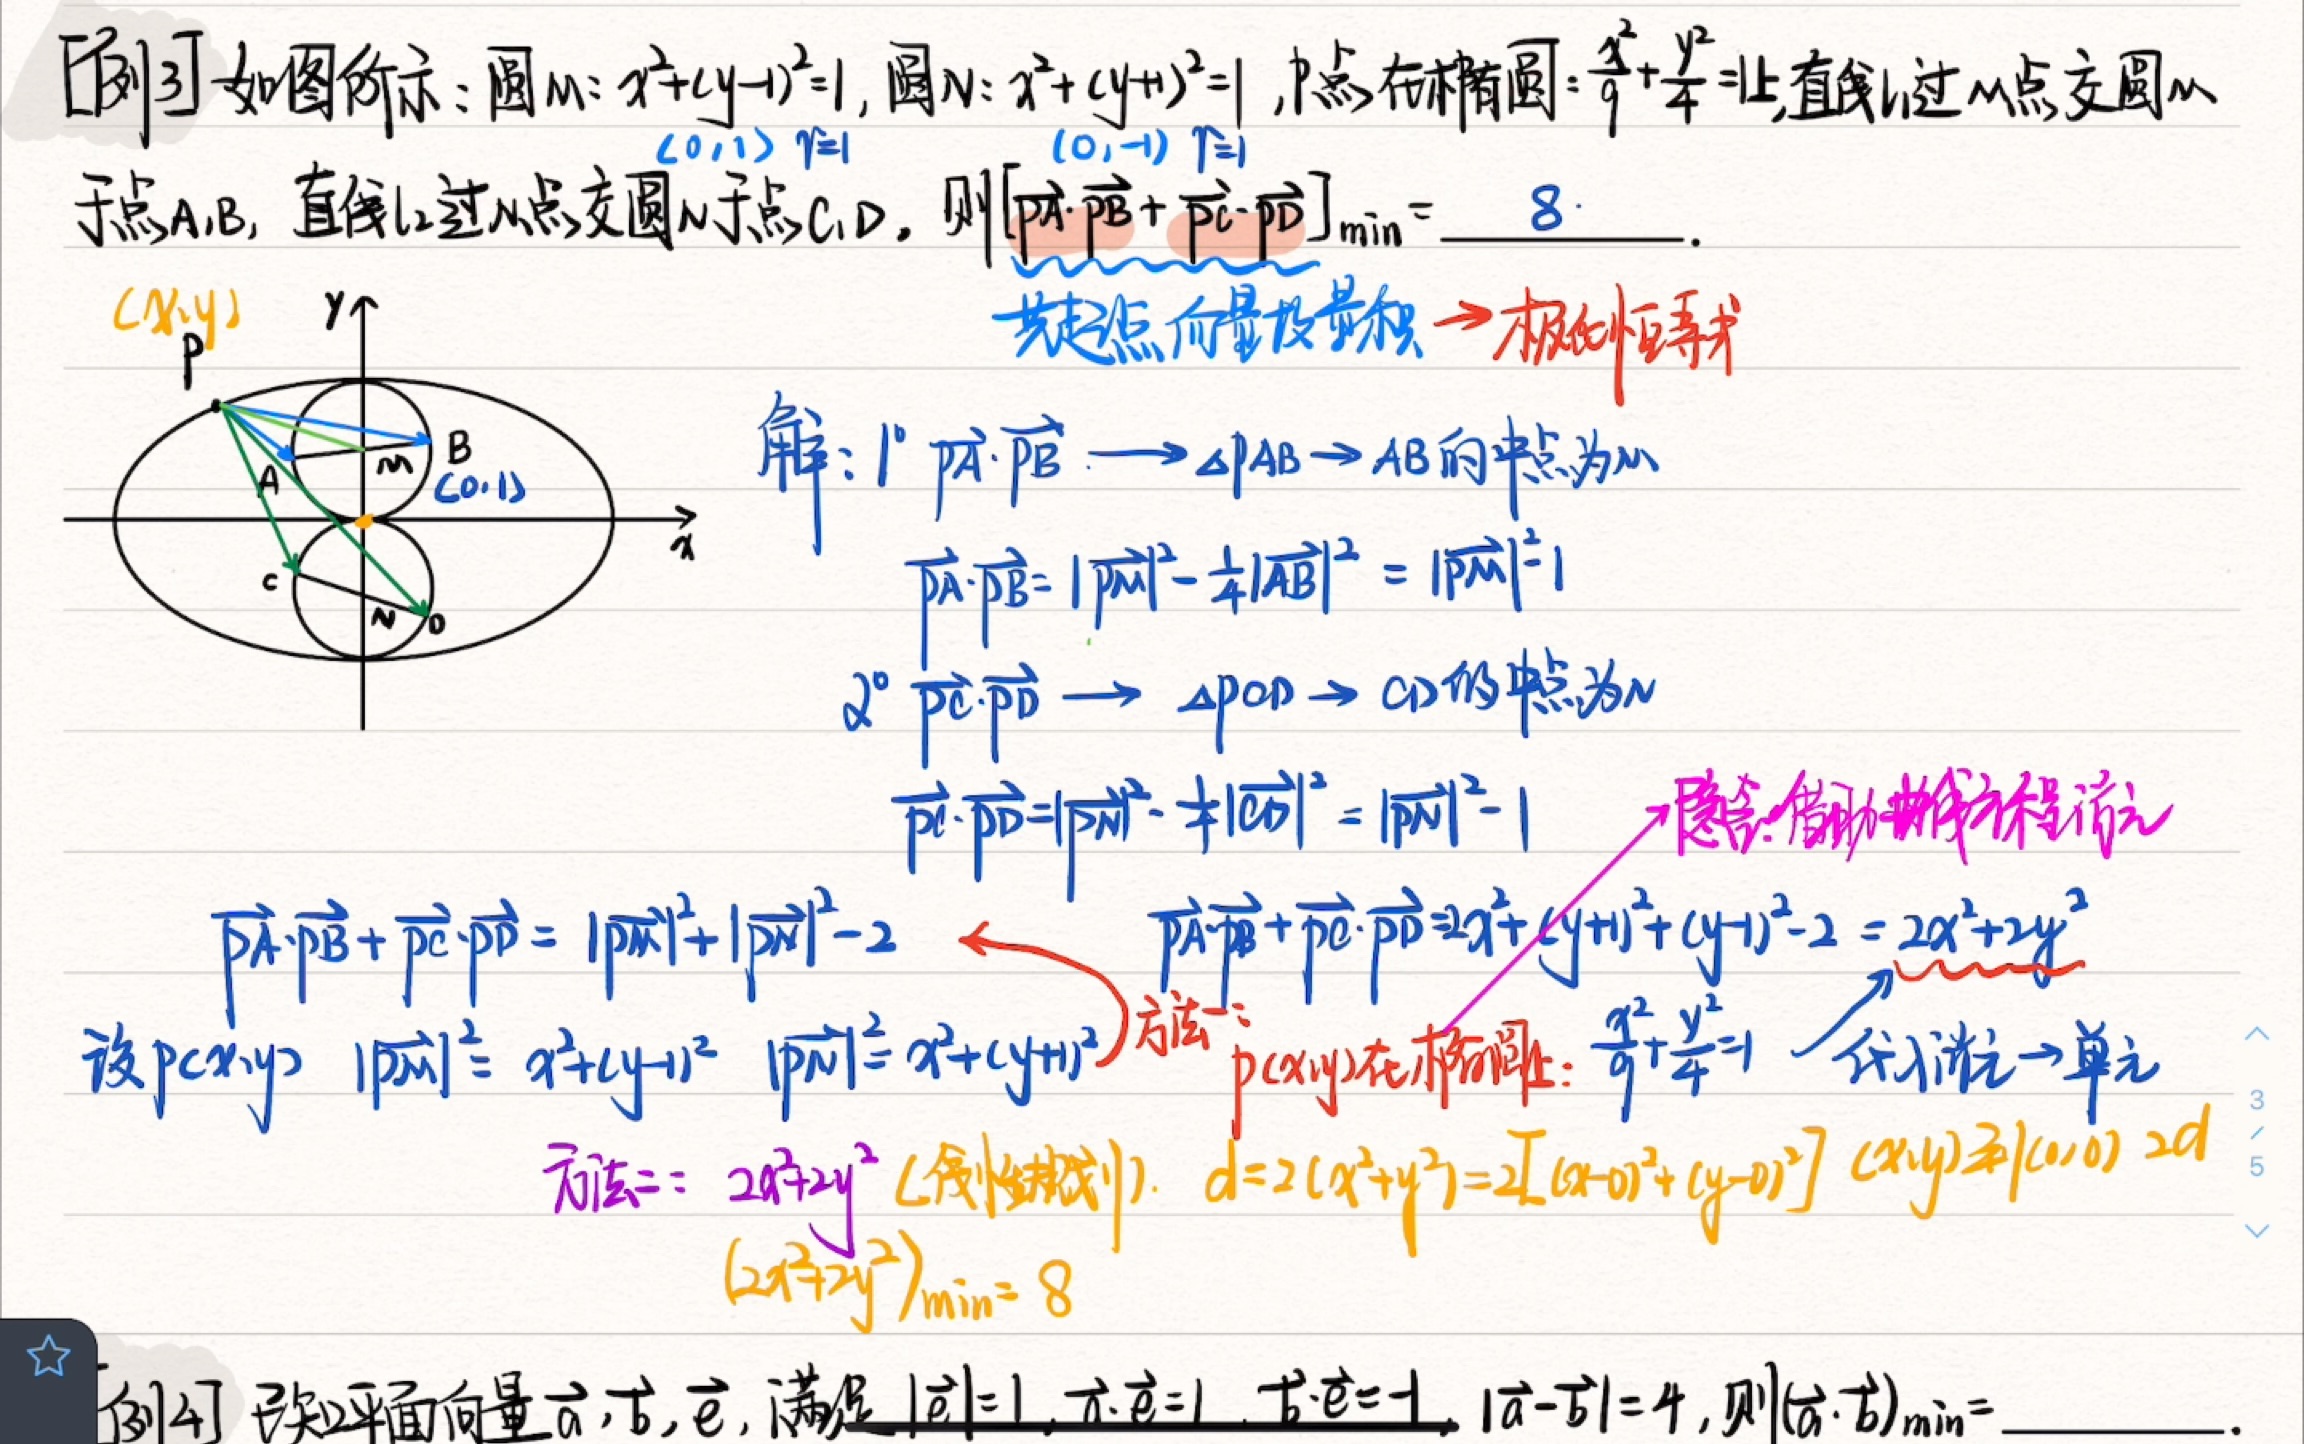 [例3] 如图所示：圆M：x²+(y-1)²=1，圆N：x²+(y+1)²=1，P点在椭圆：x²/9+y²/4=1上，直线l₁过M点交圆M
(0,1) r=1 (0,-1) r=1
于点A,B，直线l₂过N点交圆N于点C,D。则[PA·PB+PC·PD]min= 8 .
共起点向量数量积→极化恒等式
(x,y)
P
y
A M B
(0,1)
x
C N D
解：1° PA·PB → △PAB → AB的中点为M
PA·PB=|PM|²-1/4|AB|² = |PM|²-1
2° PC·PD → △PCD → CD的中点为N
PC·PD=|PN|²-1/4|CD|² = |PN|²-1
隐含：借助曲线方程消元
PA·PB+PC·PD= |PM|²+|PN|²-2
PA·PB+PC·PD=2x²+(y+1)²+(y-1)²-2 = 2x²+2y²
设P(x,y) |PM|²= x²+(y-1)² |PN|²= x²+(y+1)²
方法一：
P(x,y)在椭圆上：x²/9+y²/4=1 代入消元→单元
方法二：2x²+2y² (线性规划). d=2(x²+y²)=2[(x-0)²+(y-0)²] (x,y)到(0,0) 2d
(2x²+2y²)min= 8
3/5
[例4] 已知平面向量a,b,e,满足|e|=1, a·e=1, b·e=-1, |a-b|=4,则(a·b)min= .